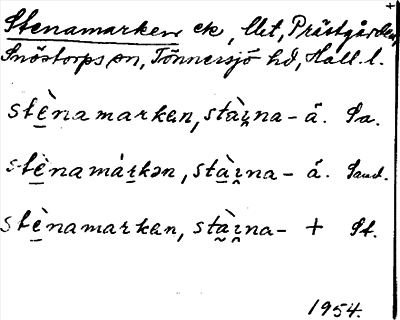 Stenamarken ck, Ubt, Prästgården,
Snöstorps sn, Tönnersjö hd, Hall. l.
stènamarken, stàina- ä. Sa.
stènamárkən, stàina- ä. Sand.
stènamarken, stàina- + St.
1954.